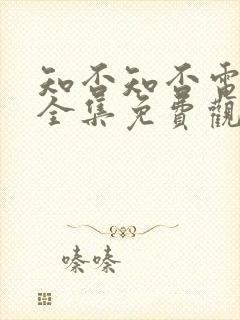 知否知否電
全集免費觀
嗪嗪